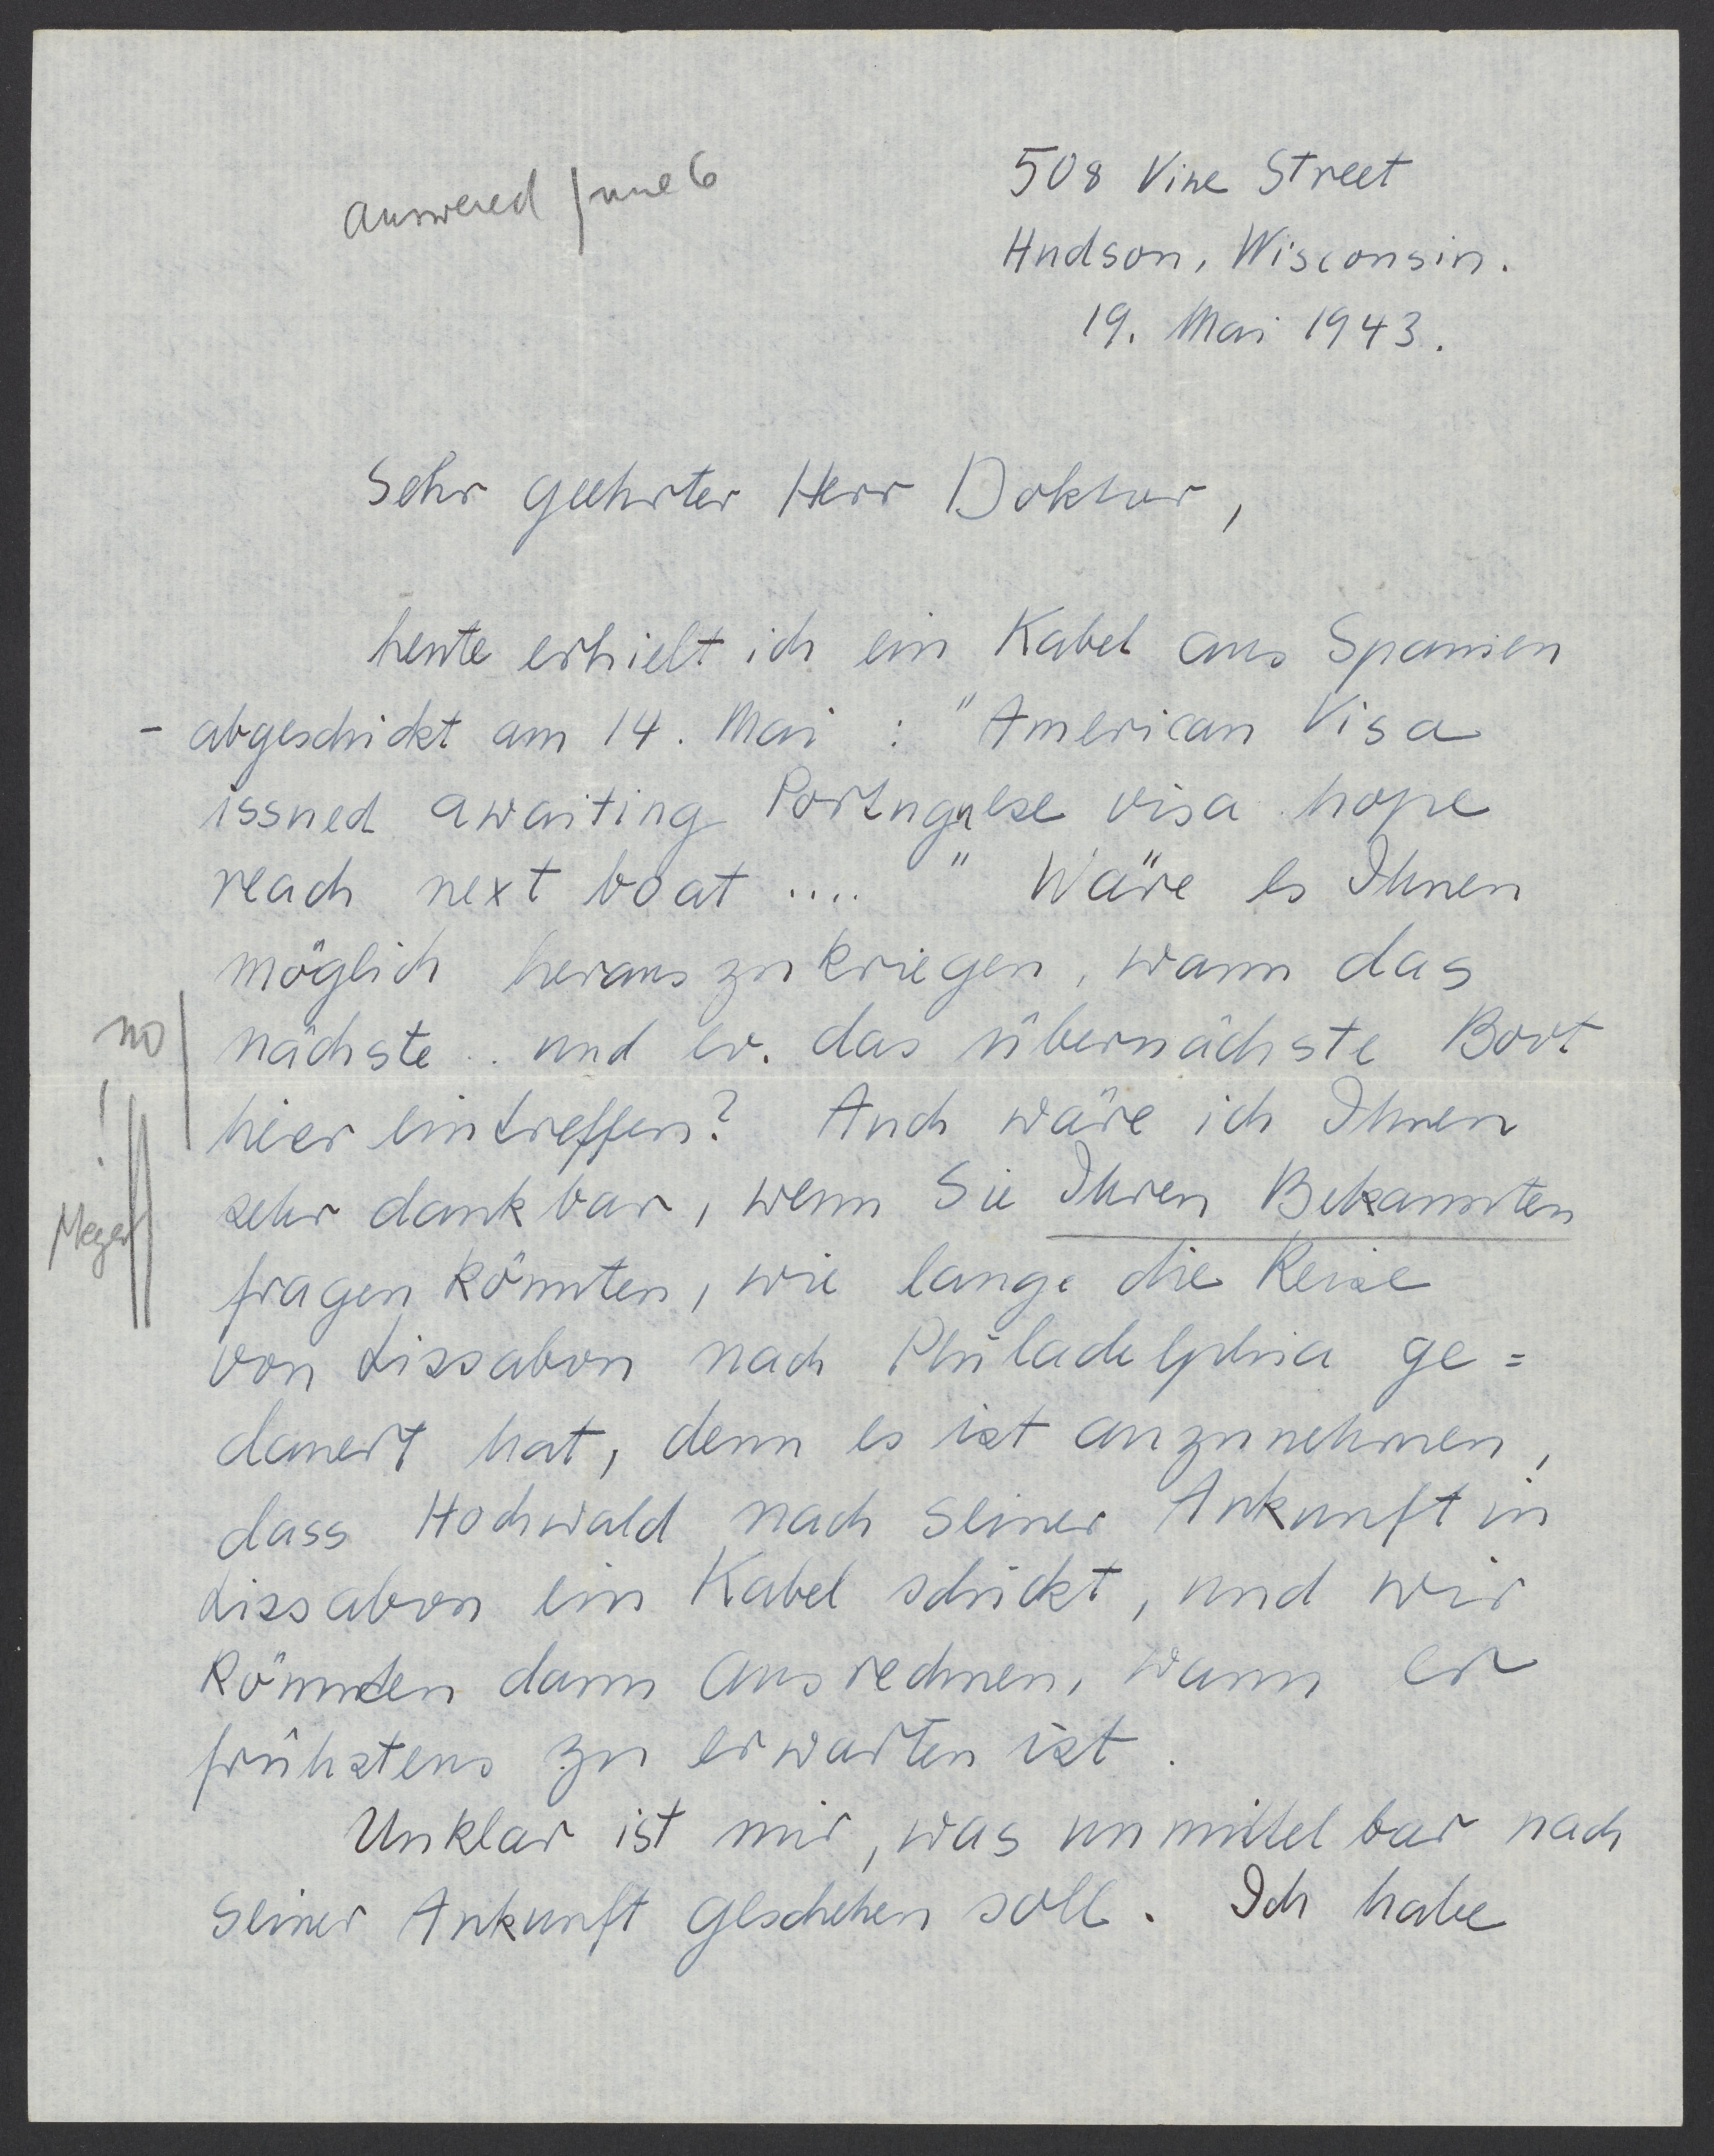 answered June 6
508 Vine Street
Hudson, Wisconsin.
19. Mai 1943.
Sehr geehrter Herr Doktor,
heute erhielt ich ein Kabel aus Spanien
- abgeschickt am 14. Mai : "American Visa
issued awaiting Portuguese visa hope
reach next boat .... " Wäre es Ihnen
möglich herauszukriegen, wann das
no
nächste .. und ev. das übernächste Boot
hier eintreffen? Auch wäre ich Ihnen
!
sehr dankbar, wenn Sie Ihren Bekannten
Meyer
fragen könnten, wie lange die Reise
von Lissabon nach Philadelphia ge=
dauert hat, denn es ist anzunehmen,
dass Hochwald nach seiner Ankunft in
Lissabon ein Kabel schickt, und wir
könnten dann ausrechnen, wann er
frühstens zu erwarten ist.
Unklar ist mir, was unmittelbar nach
seiner Ankunft geschehen soll. Ich habe